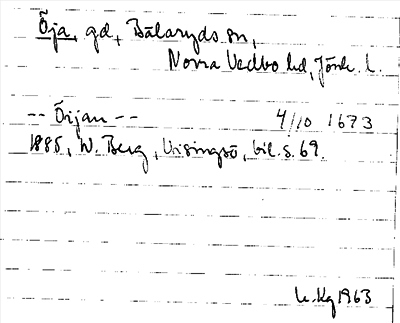 Öja, gd, Bälaryds sn,
Norra Vedbo hd, Jönk. l.
-- Öijan -- 4/10 1673
1885, W. Berg, Visingsö, bil. s. 69.
Kg 1963